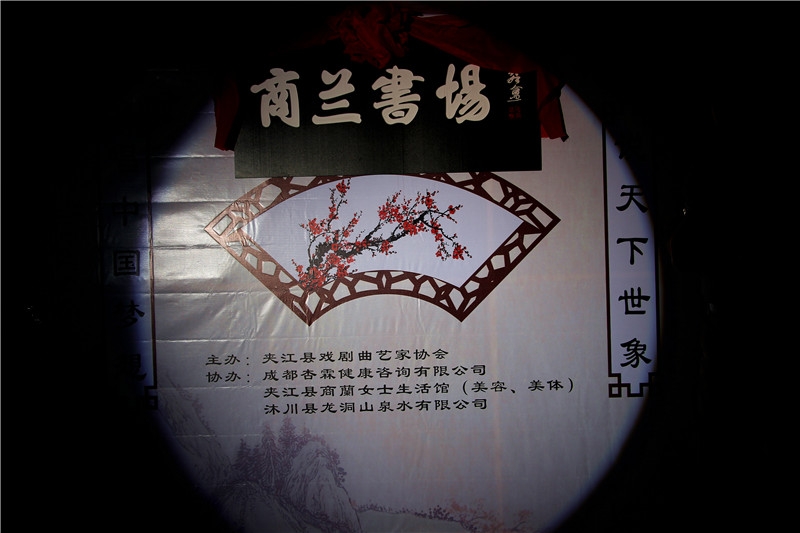 商兰書場
主办：夹江县戏剧曲艺家协会
协办：成都杏霖健康咨询有限公司
夹江县商蘭女士生活馆（美容、美体）
沐川县龙洞山泉水有限公司
天下世象
中国梦